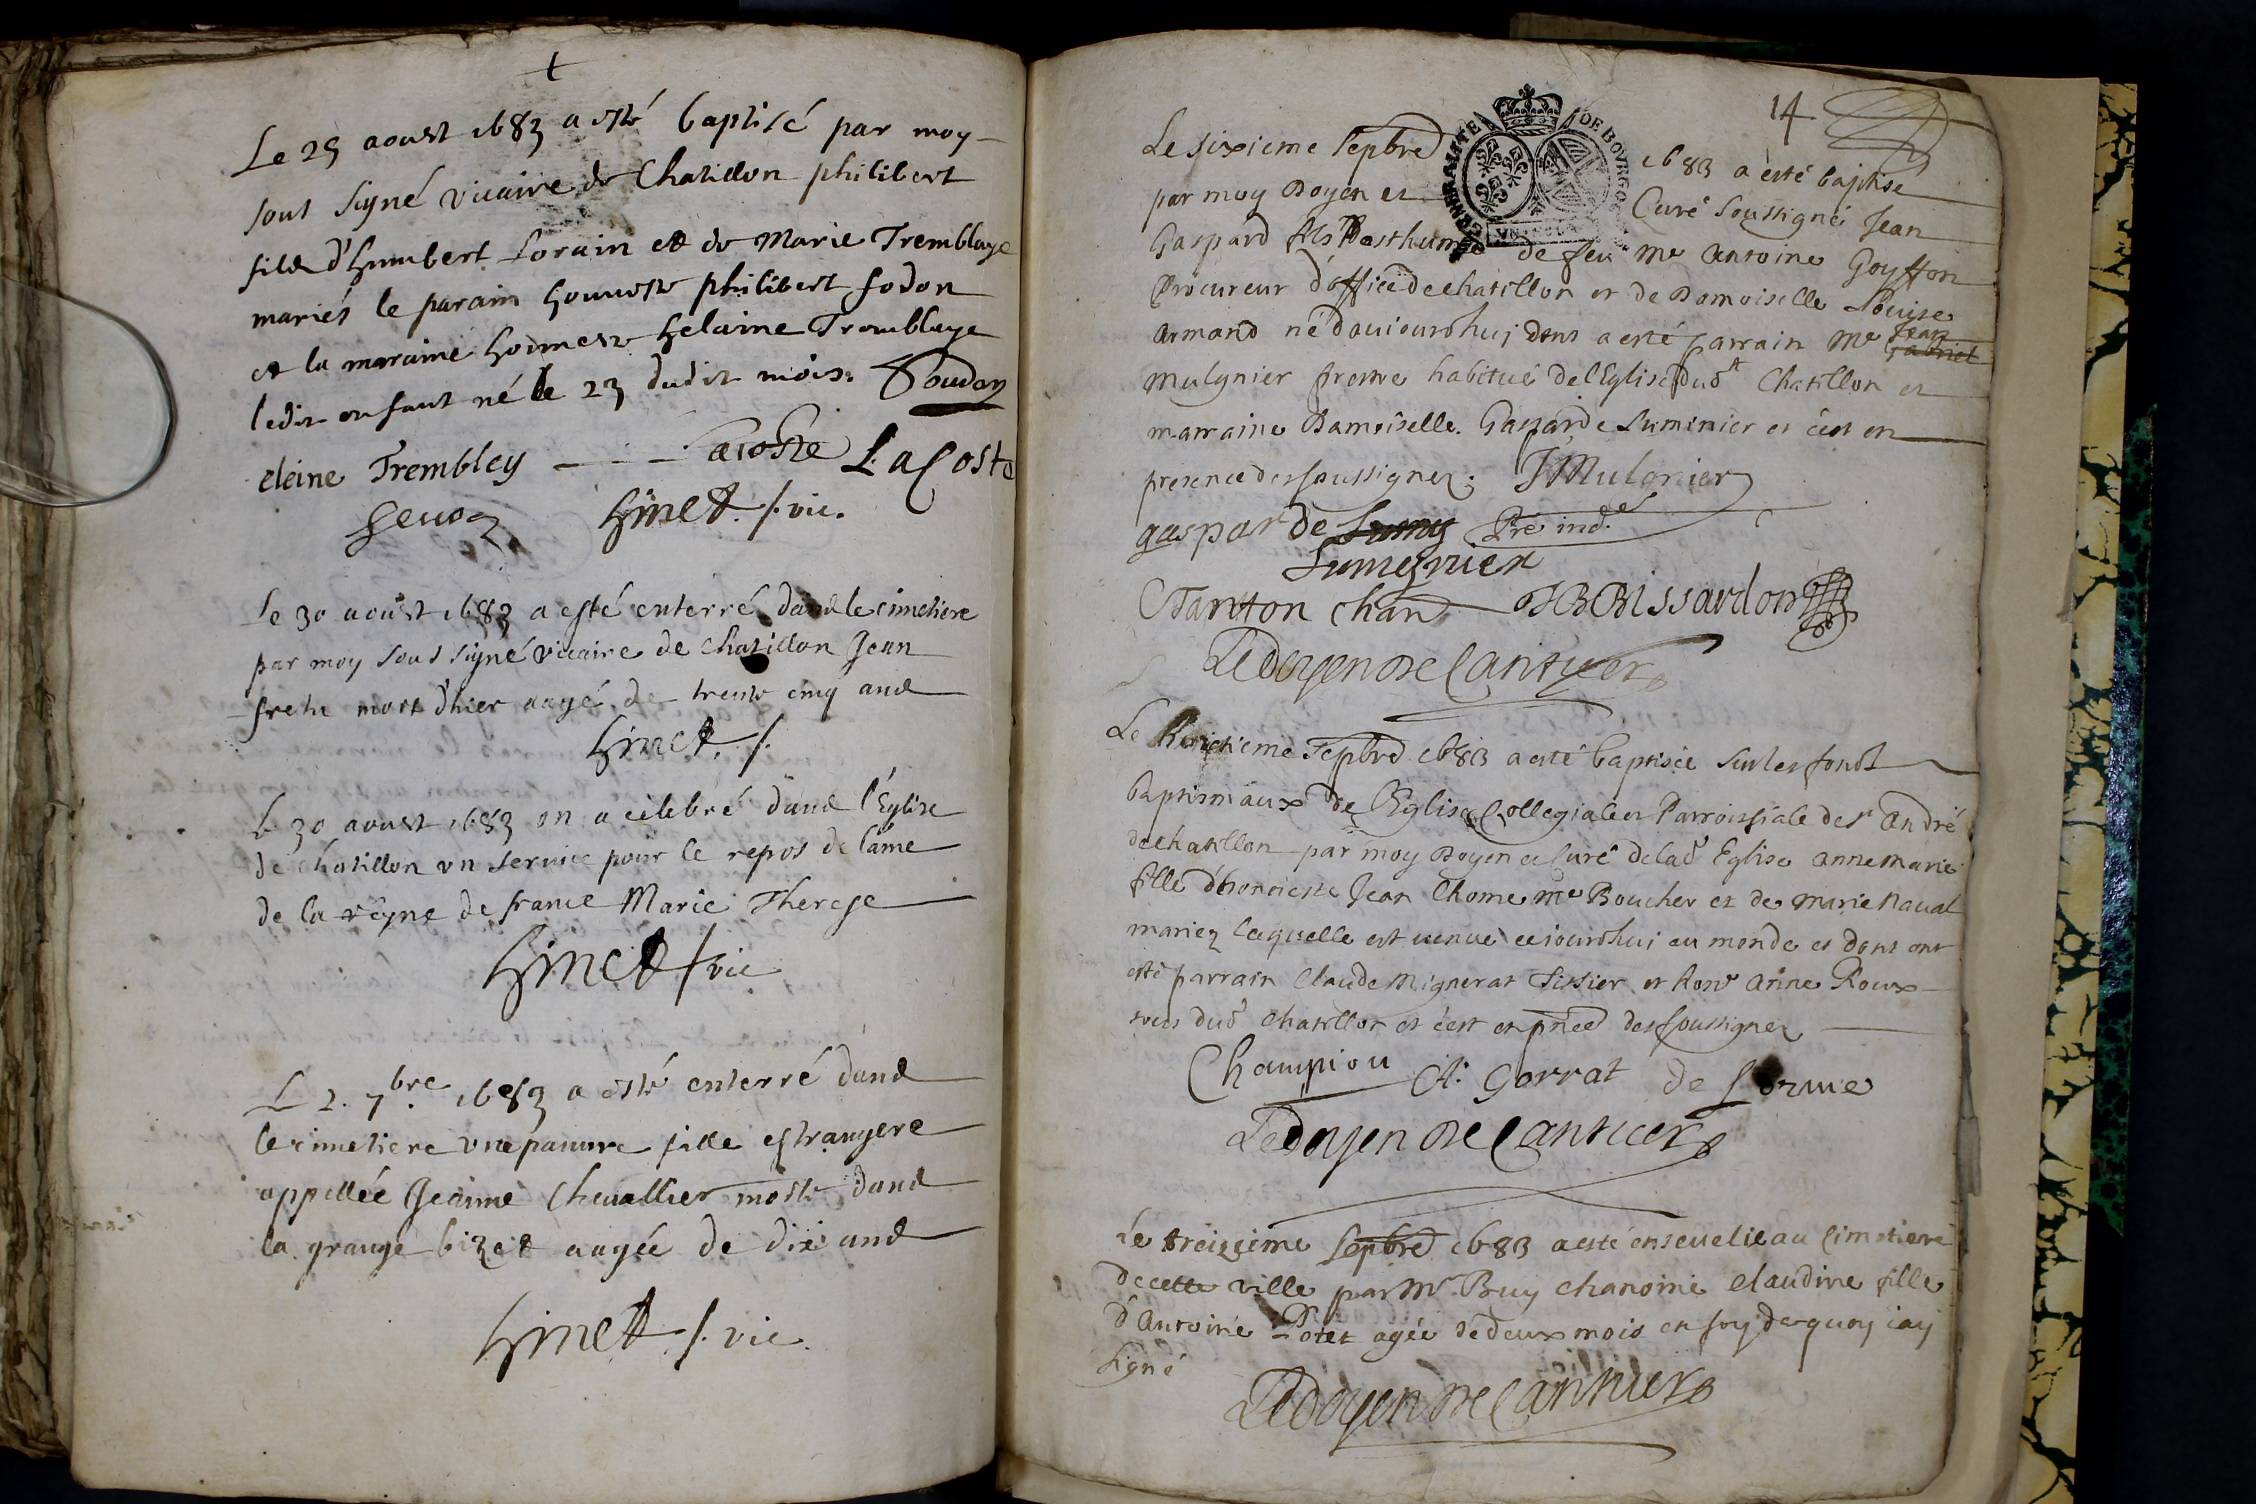 Le 25 aoust 1683 a esté baptisé par moy
sous signé vicaire de Chatillon philibert
fils d'humbert Lorain et de Marie Tremblaye
mariés le parain honneste philibert fodon
et la maraine honneste helaine Tremblaye
ledit enfant né le 23 dudit mois.
eleine Trembley Lacoste LaCoste
hinet s. vic.
Le 30 aoust 1683 a esté enterré dans le cimetiere
par moy sous signé vicaire de chatillon Jean
mort d'hier aagé de trente cinq ans
hinet s.
Le 30 aoust 1683 on a celebré dans l'Eglise
de chatillon un service pour le repos de l'ame
de la reyne de france Marie Therese
hinet s vic
Le 2. 7bre. 1683 a esté enterré dans
le cimetiere une pauvre fille estrangere
appellée Jeanne Chevallier morte dans
la grange bizet aagée de dix ans
hinet s. vic.
14
GENERALITE DE BOVRGO
Le sixieme Sepbre 1683 a esté baptise
par moy Doyen et Curé soussigné Jean
Gaspard fils Posthume de feu Me Antoine Goyffon
Procureur d'office de chatillon et de Damoiselle Louise
Armand né d'auiourdhuj dont a esté parrain Me Jean Gabriel
Mulgnier prestre habitué de l'Eglise dud Chatillon et
marraine Damoiselle Gasparde Sumenier et c'est en
presence des soussignez. J Mulgnier
gasparde Pre ind.
Sumegnier
Tanton chan JBBrissardon
Le doyen De Cantuer
Le huictieme Sepbre 1683 a esté baptisée sur les fonds
baptismaux de l'Eglise Collegiale et Parroissiale de st André
de chatillon par moy Doyen et Curé de lad Eglise anne marie
fille d'honneste Jean Chome Me Boucher et de marie Naval
mariez laquelle est venue ceiourdhuj au monde et dont ont
esté parrain Claude Mignerat Tissier et hone Anne Roux
tous dud chatillon et c'est en pnce des soussignez
Champion Cl. Gorrat de Lorme
Le doyen De Cantuer
Le treizieme Sepbre 1683 a esté ensevelie au Cimetiere
de cette ville par Mr Buy chanoine claudine fille
d'Antoine Poter agée de deux mois en foy de quoy iay
signé
Le doyen De Cantuer